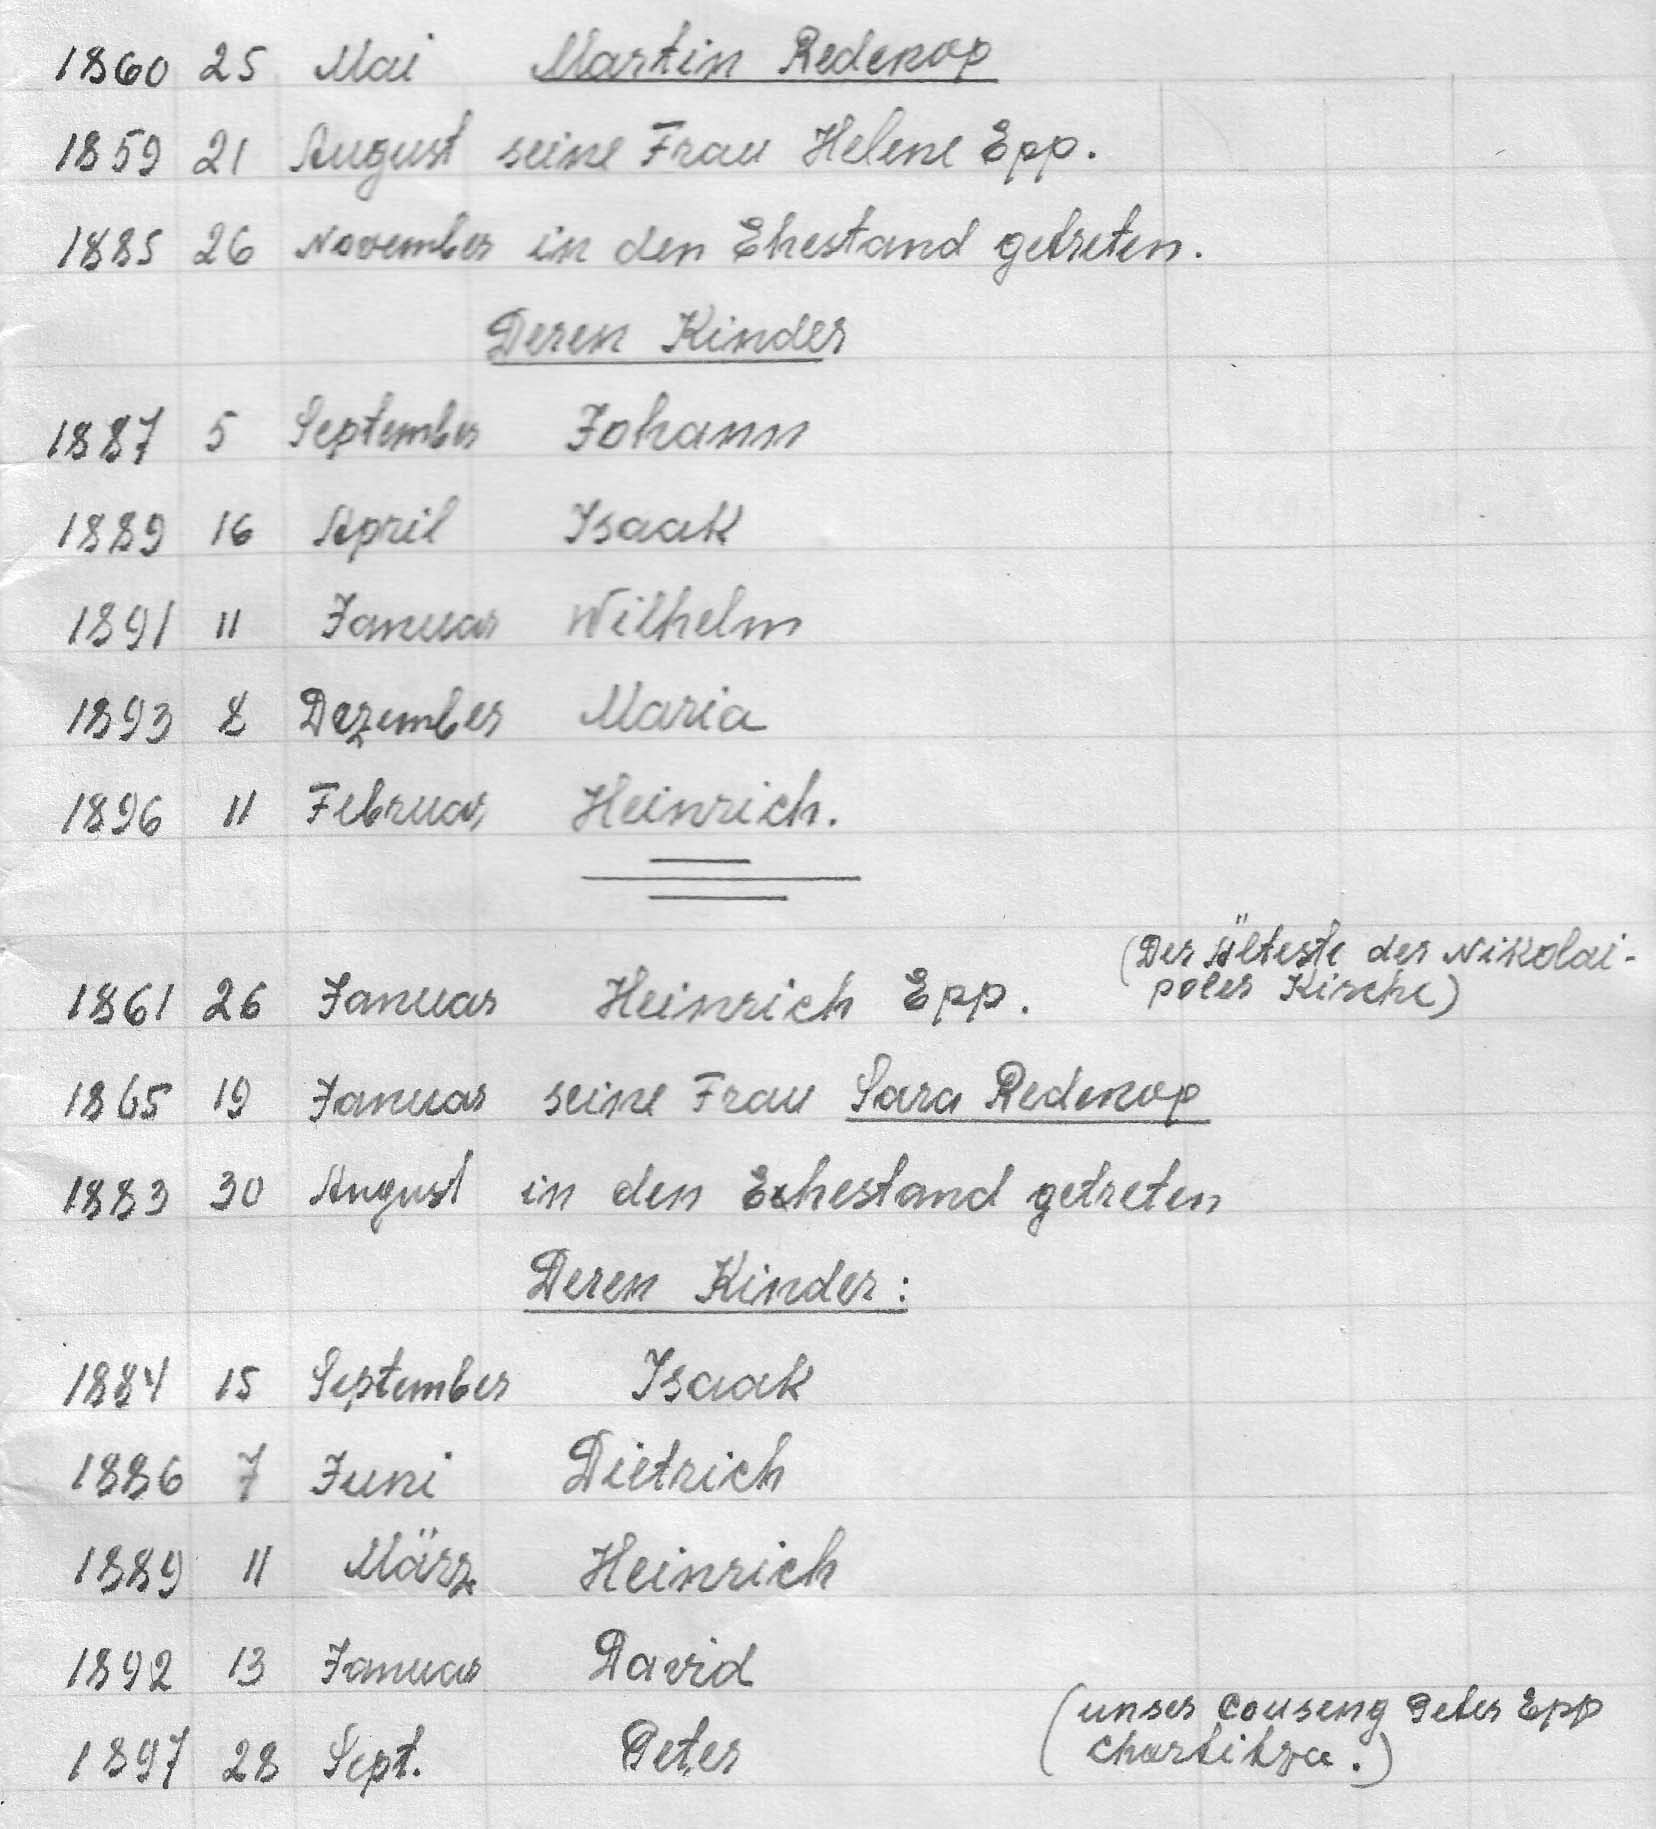 1860 25 Mai Martin Redekop
1859 21 August seine Frau Helene Epp.
1885 26 November in den Ehestand getreten.
Deren Kinder
1887 5 September Johann
1889 16 April Isaak
1891 11 Januar Wilhelm
1893 8 Dezember Maria
1896 11 Februar Heinrich.
(Der Älteste der Nikolai-
poler Kirche)
1861 26 Januar Heinrich Epp.
1865 19 Januar seine Frau Sara Redekop
1883 30 August in den Ehestand getreten
Deren Kinder:
1884 15 September Isaak
1886 7 Juni Dietrich
1889 11 März Heinrich
1892 13 Januar David
(unser Couseng Peter Epp
1897 28 Sept. Peter
Chortitza.)